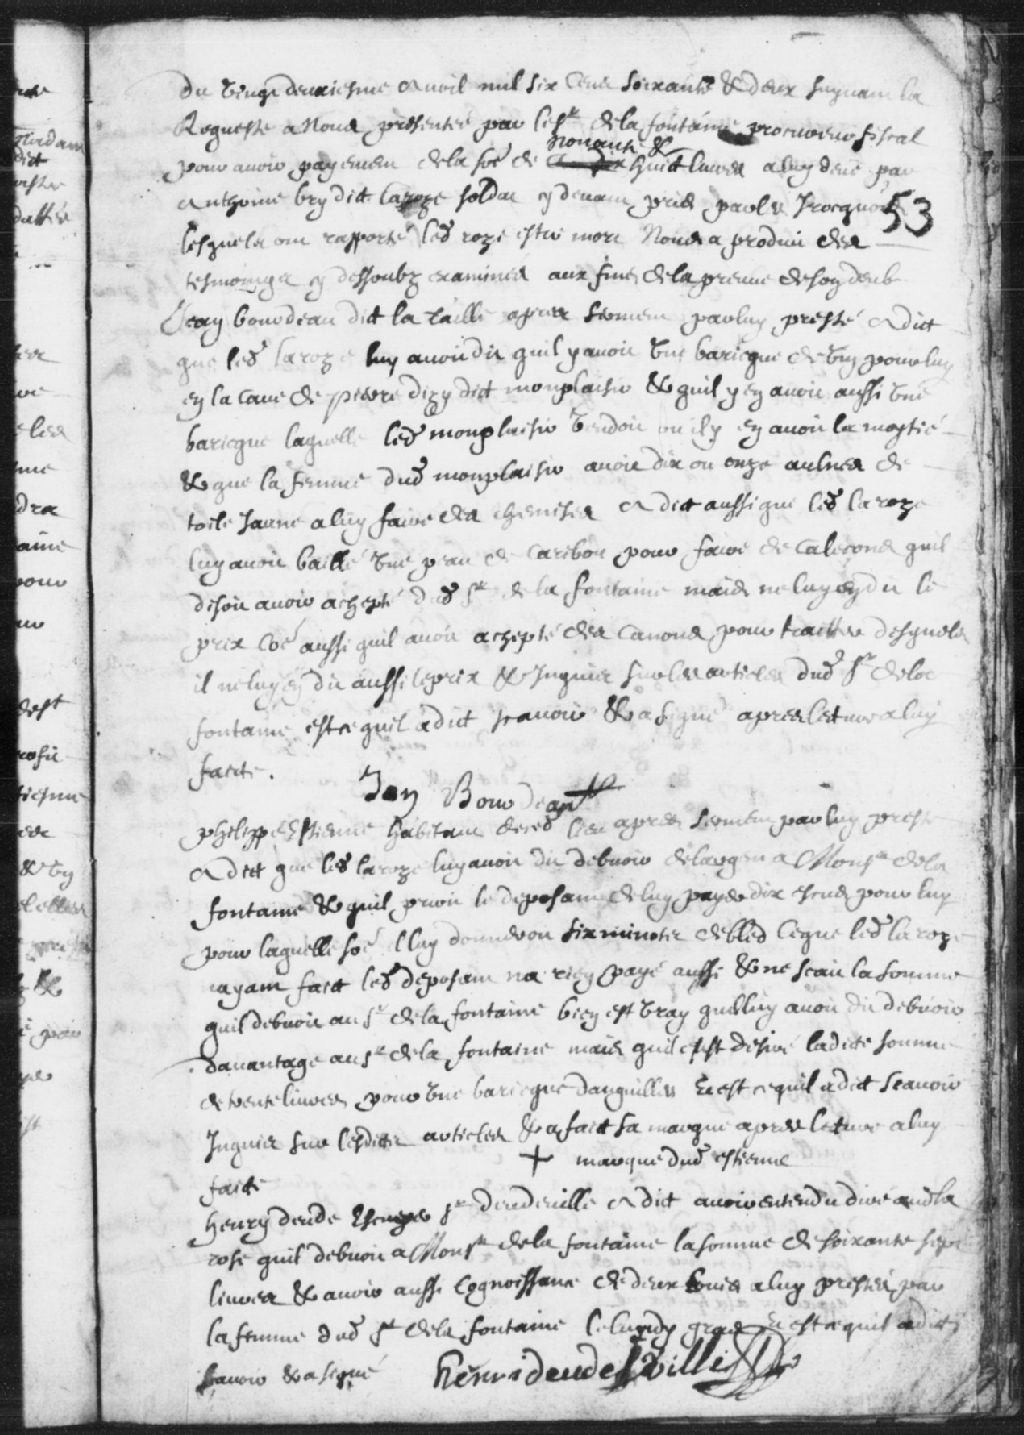 du vingt deuxiesme avril mil six cens soixante & deux suyvant la
Requeste a Nous presentée par le sr de la fontaine procureur fiscal
nonante &
pour avoir payement de la soe de huict livres a luy deue par
Anthoine bry dict laroze soldat cy devant pris par les Irocquois
53
lesquels ont rapporté led roze estre mort Nous a produit des
tesmoings cy dessoubz examinés aux fins de la preuve de son deub
Jean bourdeau dict la taille apres serment par luy presté A dict
que led laroze luy avoit dit quil y avoit une baricque de vin pour luy
en la cave de pierre dizy dict monplaisir & quil y en avoit aussi une
baricque laquelle led monplaisir vendoit ou il y en avoit la moytié
& que la femme dud monplaisir avoit dix ou onze aulnes de
toile jaune a luy faire des chemises A dict aussi que led laroze
luy avoit baillé une peau de caribou pour faire de calecons quil
disoit avoir achepté dud sr de la fontaine mais ne luy en dit le
prix coe aussi quil avoit achepté des canons pour traitter desquels
il ne luy en dit aussi le prix & Inquis sur les articles dud sr de la
fontaine est ce quil a dict scavoir & a signé apres lecture a luy
faicte.
Jan Bourdeau
phelippe Estienne habitant de ced lieu apres serment par luy presté
A dict que led laroze luy avoit dit debvoir de largent a Monsr de la
fontaine & quil prioit le deposant de luy payer dix escus pour luy
pour laquelle soe il luy donneroit six minotz de bled ce que led laroze
nayant faict led deposant na rien payé aussi & ne scait la somme
quil debvoit au sr de la fontaine bien est vray quil luy avoit dit debvoir
davantage au sr de la fontaine mais quil eust desiré ladite somme
de trente livres pour une baricque danguilles Et est ce quil a dict scavoir
Inquis sur lesdits articles & a faict sa marque apres lecture a luy
+ marque dud estienne
faicte
henry deude Escuyer sr deudeville A dict avoir entendu dire aud la
rose quil debvoit a Monsr de la fontaine la somme de soixante sept
livres & avoir aussi cognoissance de deux louis a luy prestés par
la femme dud sr de la fontaine le lundy gras Et est ce quil a dict
scavoir & a signé
henri deudesville